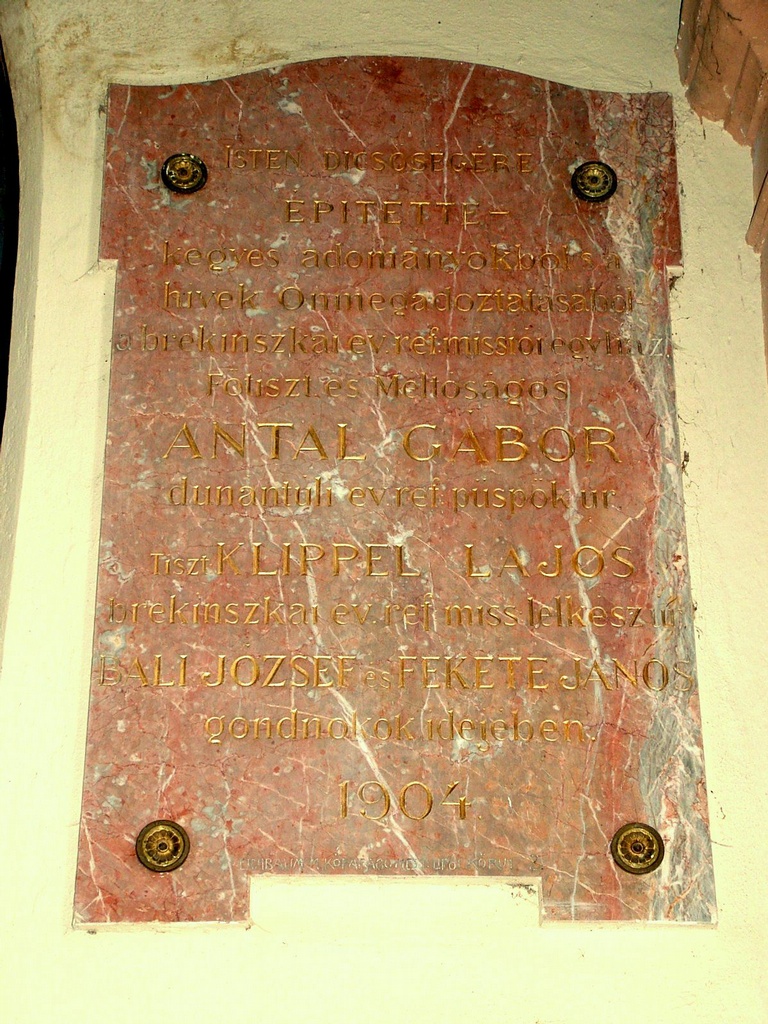 ISTEN DICSŐSÉGÉRE
ÉPITETTE-
kegyes adományokból s a
hivek Önmegadóztatásából
a brekinszkai ev ref. missiói egyház
Főtiszt. és Méltóságos
ANTAL GÁBOR
dunántúli ev ref. püspök úr
Tiszt. KLIPPEL LAJOS
brekinszkai ev. ref miss lelkész úr
BALI JÓZSEF és FEKETE JÁNOS
gondnokok idejében.
1904.